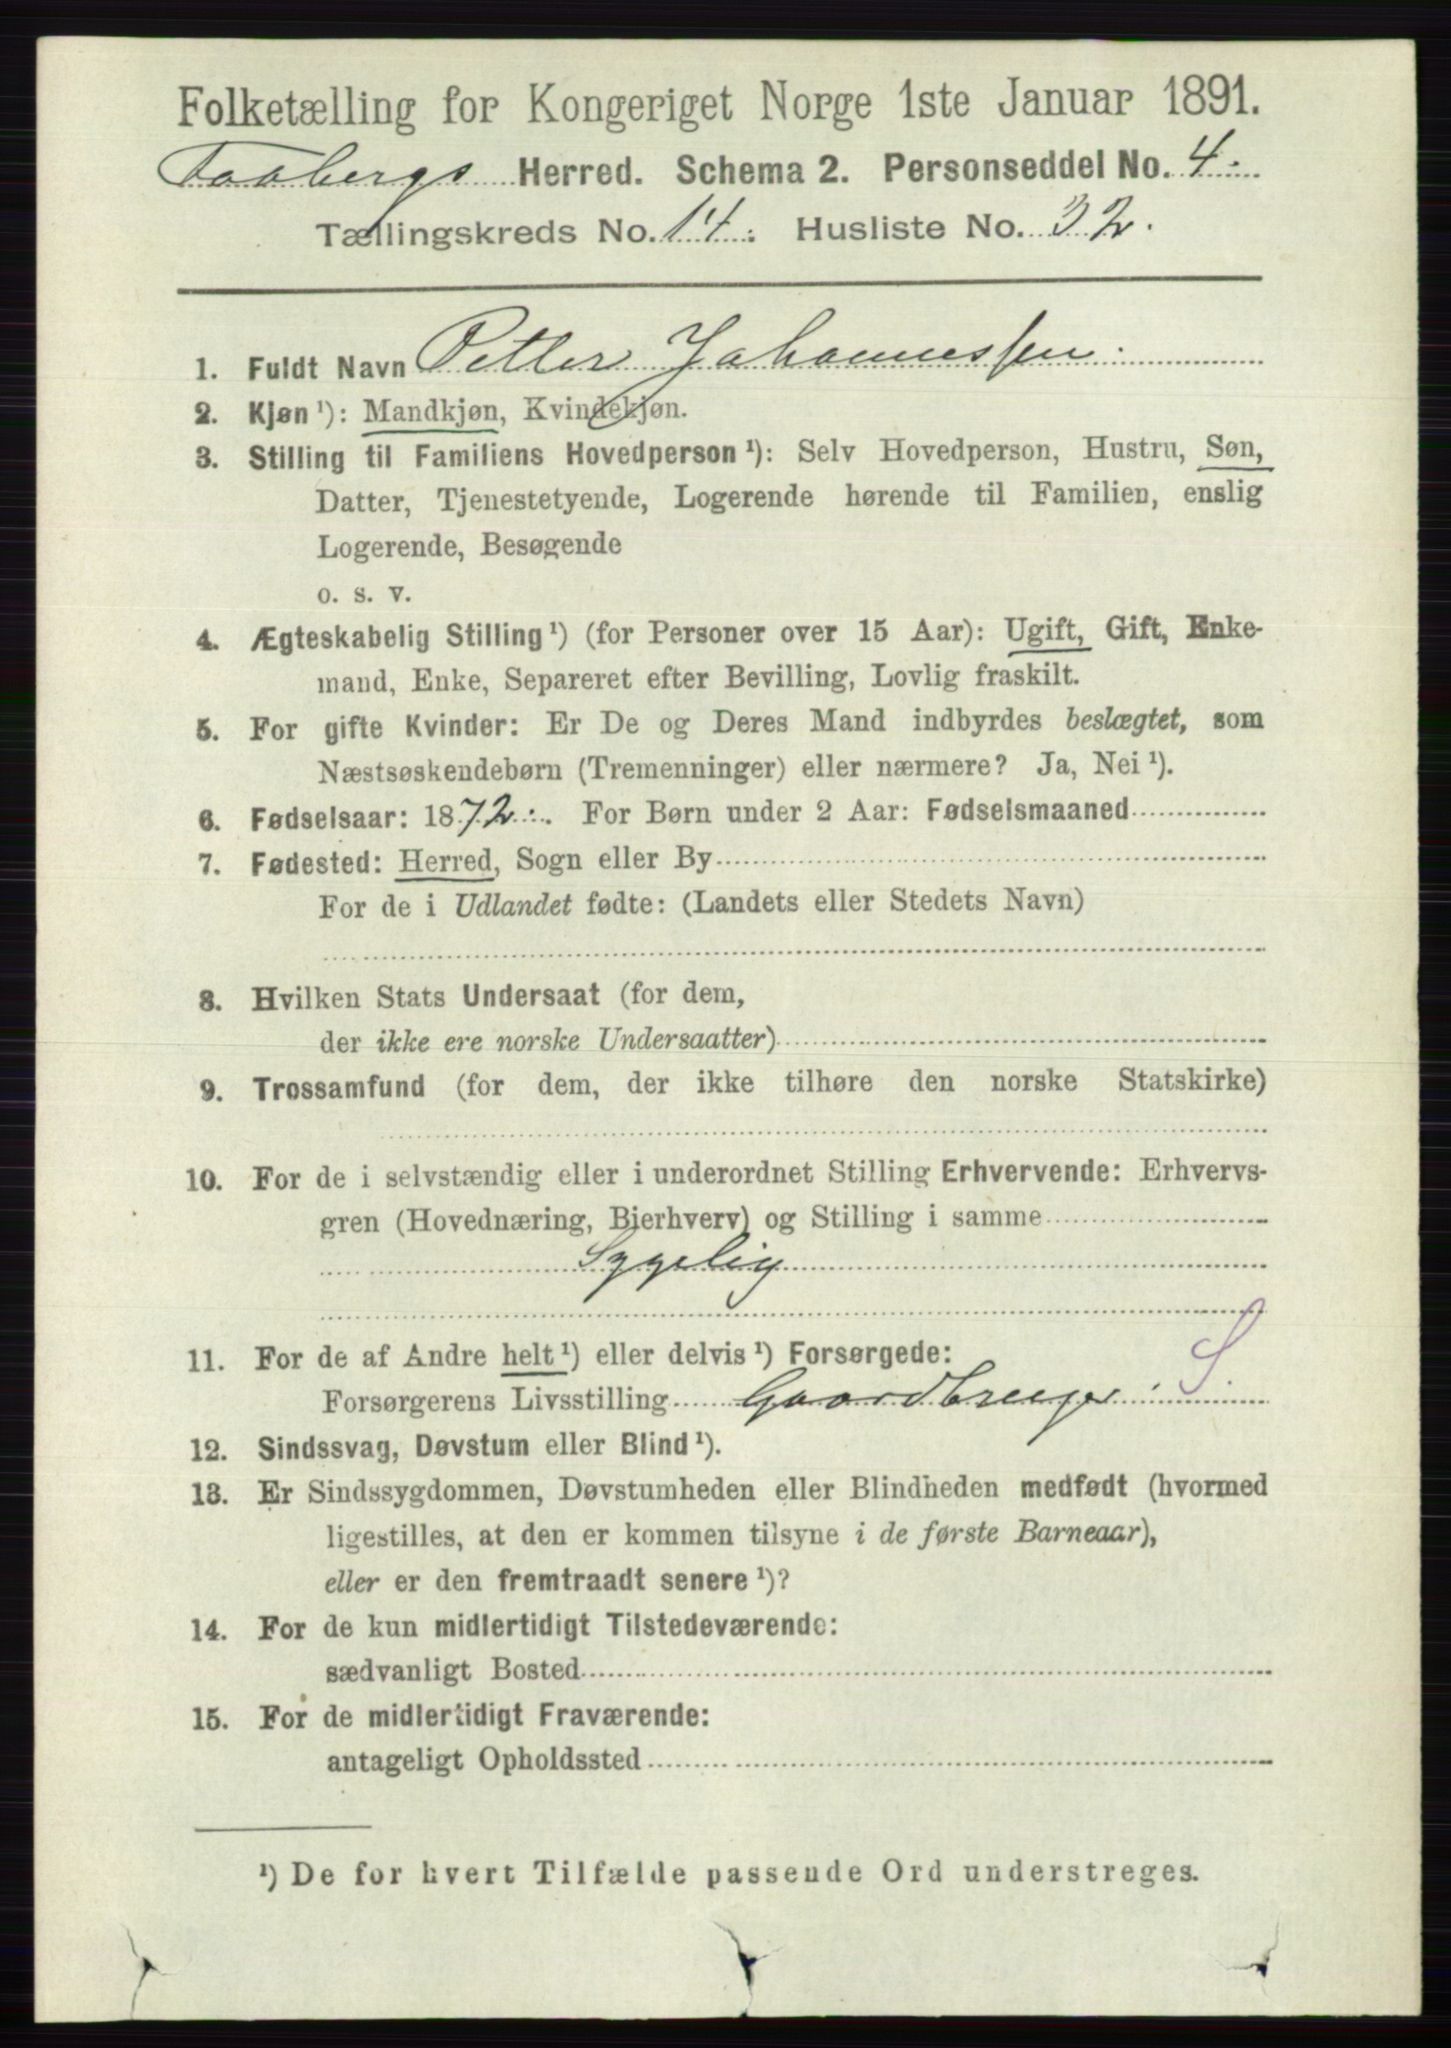 Folketælling for Kongeriget Norge 1ste Januar 1891.
Faabergs Herred. Schema 2. Personseddel No. 4.
Tællingskreds No. 14. Husliste No. 32.
1. Fuldt Navn Petter Johannessen.
2. Kjøn ¹): Mandkjøn, Kvindekjøn.
3. Stilling til Familiens Hovedperson ¹): Selv Hovedperson, Hustru, Søn,
Datter, Tjenestetyende, Logerende hørende til Familien, enslig
Logerende, Besøgende
o. s. v.
4. Ægteskabelig Stilling ¹) (for Personer over 15 Aar): Ugift, Gift, Enke-
mand, Enke, Separeret efter Bevilling, Lovlig fraskilt.
5. For gifte Kvinder: Er De og Deres Mand indbyrdes beslægtet, som
Næstsøskendebørn (Tremenninger) eller nærmere? Ja, Nei ¹).
6. Fødselsaar: 1872. For Børn under 2 Aar: Fødselsmaaned
7. Fødested: Herred, Sogn eller By
For de i Udlandet fødte: (Landets eller Stedets Navn)
8. Hvilken Stats Undersaat (for dem,
der ikke ere norske Undersaatter)
9. Trossamfund (for dem, der ikke tilhøre den norske Statskirke)
10. For de i selvstændig eller i underordnet Stilling Erhvervende: Erhvervs-
gren (Hovednæring, Bierhverv) og Stilling i samme
Sygelig
11. For de af Andre helt ¹) eller delvis ¹) Forsørgede: S.
Forsørgerens Livsstilling Gaardbruger.
12. Sindssvag, Døvstum eller Blind ¹).
13. Er Sindssygdommen, Døvstumheden eller Blindheden medfødt (hvormed
ligestilles, at den er kommen tilsyne i de første Barneaar),
eller er den fremtraadt senere ¹)?
14. For de kun midlertidigt Tilstedeværende:
sædvanligt Bosted
15. For de midlertidigt Fraværende:
antageligt Opholdssted
¹) De for hvert Tilfælde passende Ord understreges.